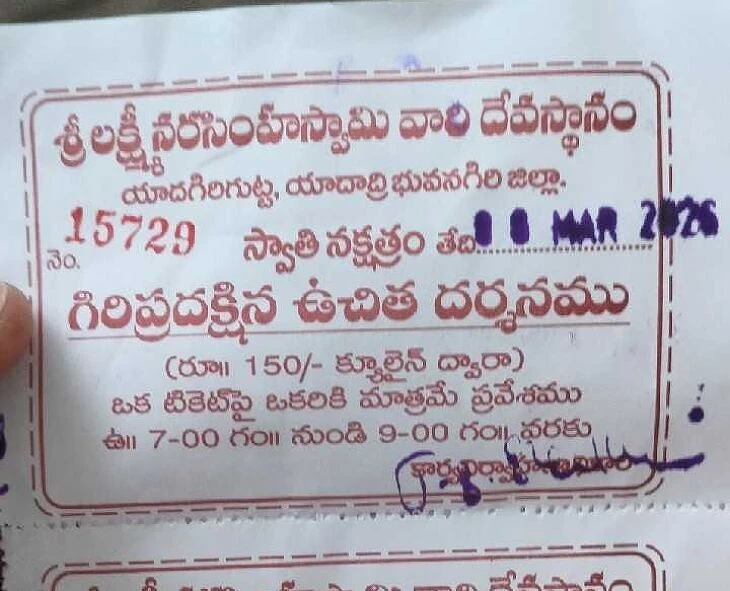 శ్రీ లక్ష్మీ నరసింహస్వామి వారి దేవస్థానం
యాదగిరిగుట్ట, యాదాద్రి భువనగిరి జిల్లా.
నెం. 15729 స్వాతి నక్షత్రం తేది MAR 2026
గిరిప్రదక్షిన ఉచిత దర్శనము
(రూ॥ 150/- క్యూలైన్ ద్వారా)
ఒక టికెట్‌పై ఒకరికి మాత్రమే ప్రవేశము
ఉ॥ 7-00 గం॥ నుండి 9-00 గం॥ వరకు
కార్యనిర్వాహణాధికారి